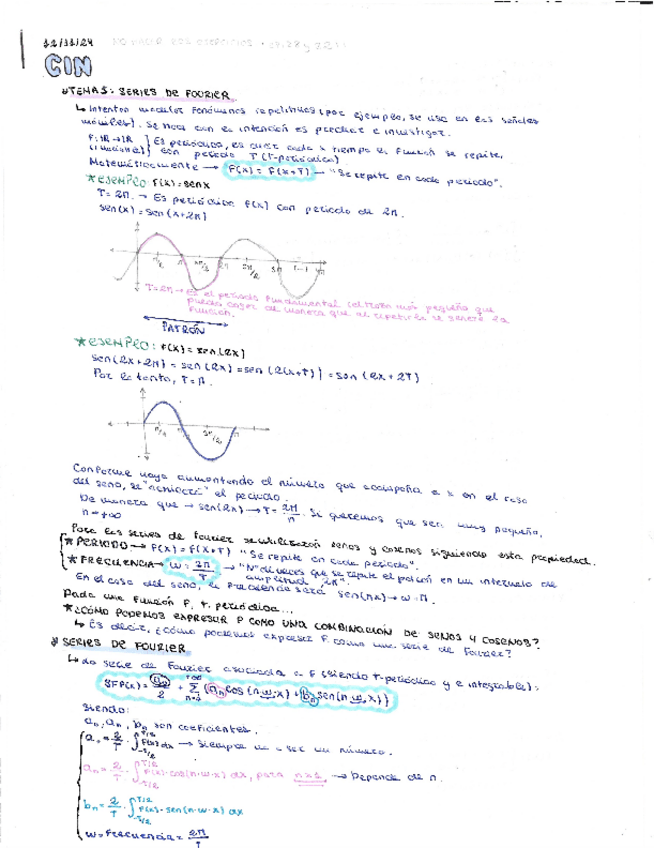 12/11/24 NO HACER LOS EJERCICIOS
CIN
TEMA 5: SERIES DE FOURIER
↳ Intentan modelar fenómenos repetitivos (por ejemplo, se usa en las señales
móviles). Se hace con la intención es predecir e investigar.
F: IR → IR } Es periódica, es decir cada x tiempo la función se repite,
con periodo T (T-periódica)
Matemáticamente → F(x) = F(x+T) → "Se repite en cada periodo".
★ EJEMPLO: F(x) = sen x
T = 2π. → Es periódica F(x) con periodo de 2π.
sen(x) = sen(x+2π)
T = 2π → Es el periodo fundamental (el trozo más pequeño que
puedo coger de manera que al repetirle se genere la
función.
PATRÓN
★ EJEMPLO: F(x) = sen(2x)
sen(2x+2π) = sen(2x) = sen(2(x+T)) = sen(2x+2T)
Por lo tanto, T = π.
Conforme vaya aumentando el número que acompaña a x en el caso
del seno, se el periodo.
De manera que → sen(nx) → T = 2π/n. Si queremos que sea muy pequeño,
n → +∞
Para las series de Fourier se utilizarán senos y cosenos siguiendo esta propiedad.
★ PERIODO → F(x) = F(x+T) "Se repite en cada periodo".
★ FRECUENCIA → w = 2π/T → "Nº de veces que se repite el patrón en un intervalo de
amplitud 2π".
En el caso del seno, la frecuencia será sen(nx) → w = n.
Dada una función F, T-periódica...
★ ¿CÓMO PODEMOS EXPRESAR F COMO UNA COMBINACIÓN DE SENOS Y COSENOS?
↳ Es decir, ¿cómo podemos expresar F como una serie de Fourier?
SERIES DE FOURIER
↳ La serie de Fourier asociada a F (siendo T-periódica y e integrable):
SF F(x) = a₀/2 + Σ (aₙ cos(n·w·x) + bₙ sen(n·w·x))
Siendo:
a₀, aₙ, bₙ son coeficientes.
a₀ = 2/T · ∫ F(x) dx → Siempre va a ser un número.
aₙ = 2/T · ∫ F(x)·cos(n·w·x) dx, para n ≥ 1 → Depende de n.
bₙ = 2/T · ∫ F(x)·sen(n·w·x) dx
w = Frecuencia = 2π/T